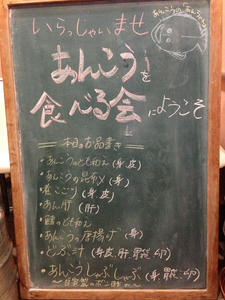 いらっしゃいませ
あんこうを
食べる会
にようこそ
本日のお品書き
・あんこうのとも和え(身皮)
・あんこうの昆布〆(身)
・煮こごり(身、皮)
・あん肝(肝)
のとも和え
・あんこうの唐揚げ(身)
・どぶ汁(身、皮、肝、胃袋、卵)
・あんこうしゃぶしゃぶ(身、胃袋、卵)
～自家製のポン酢